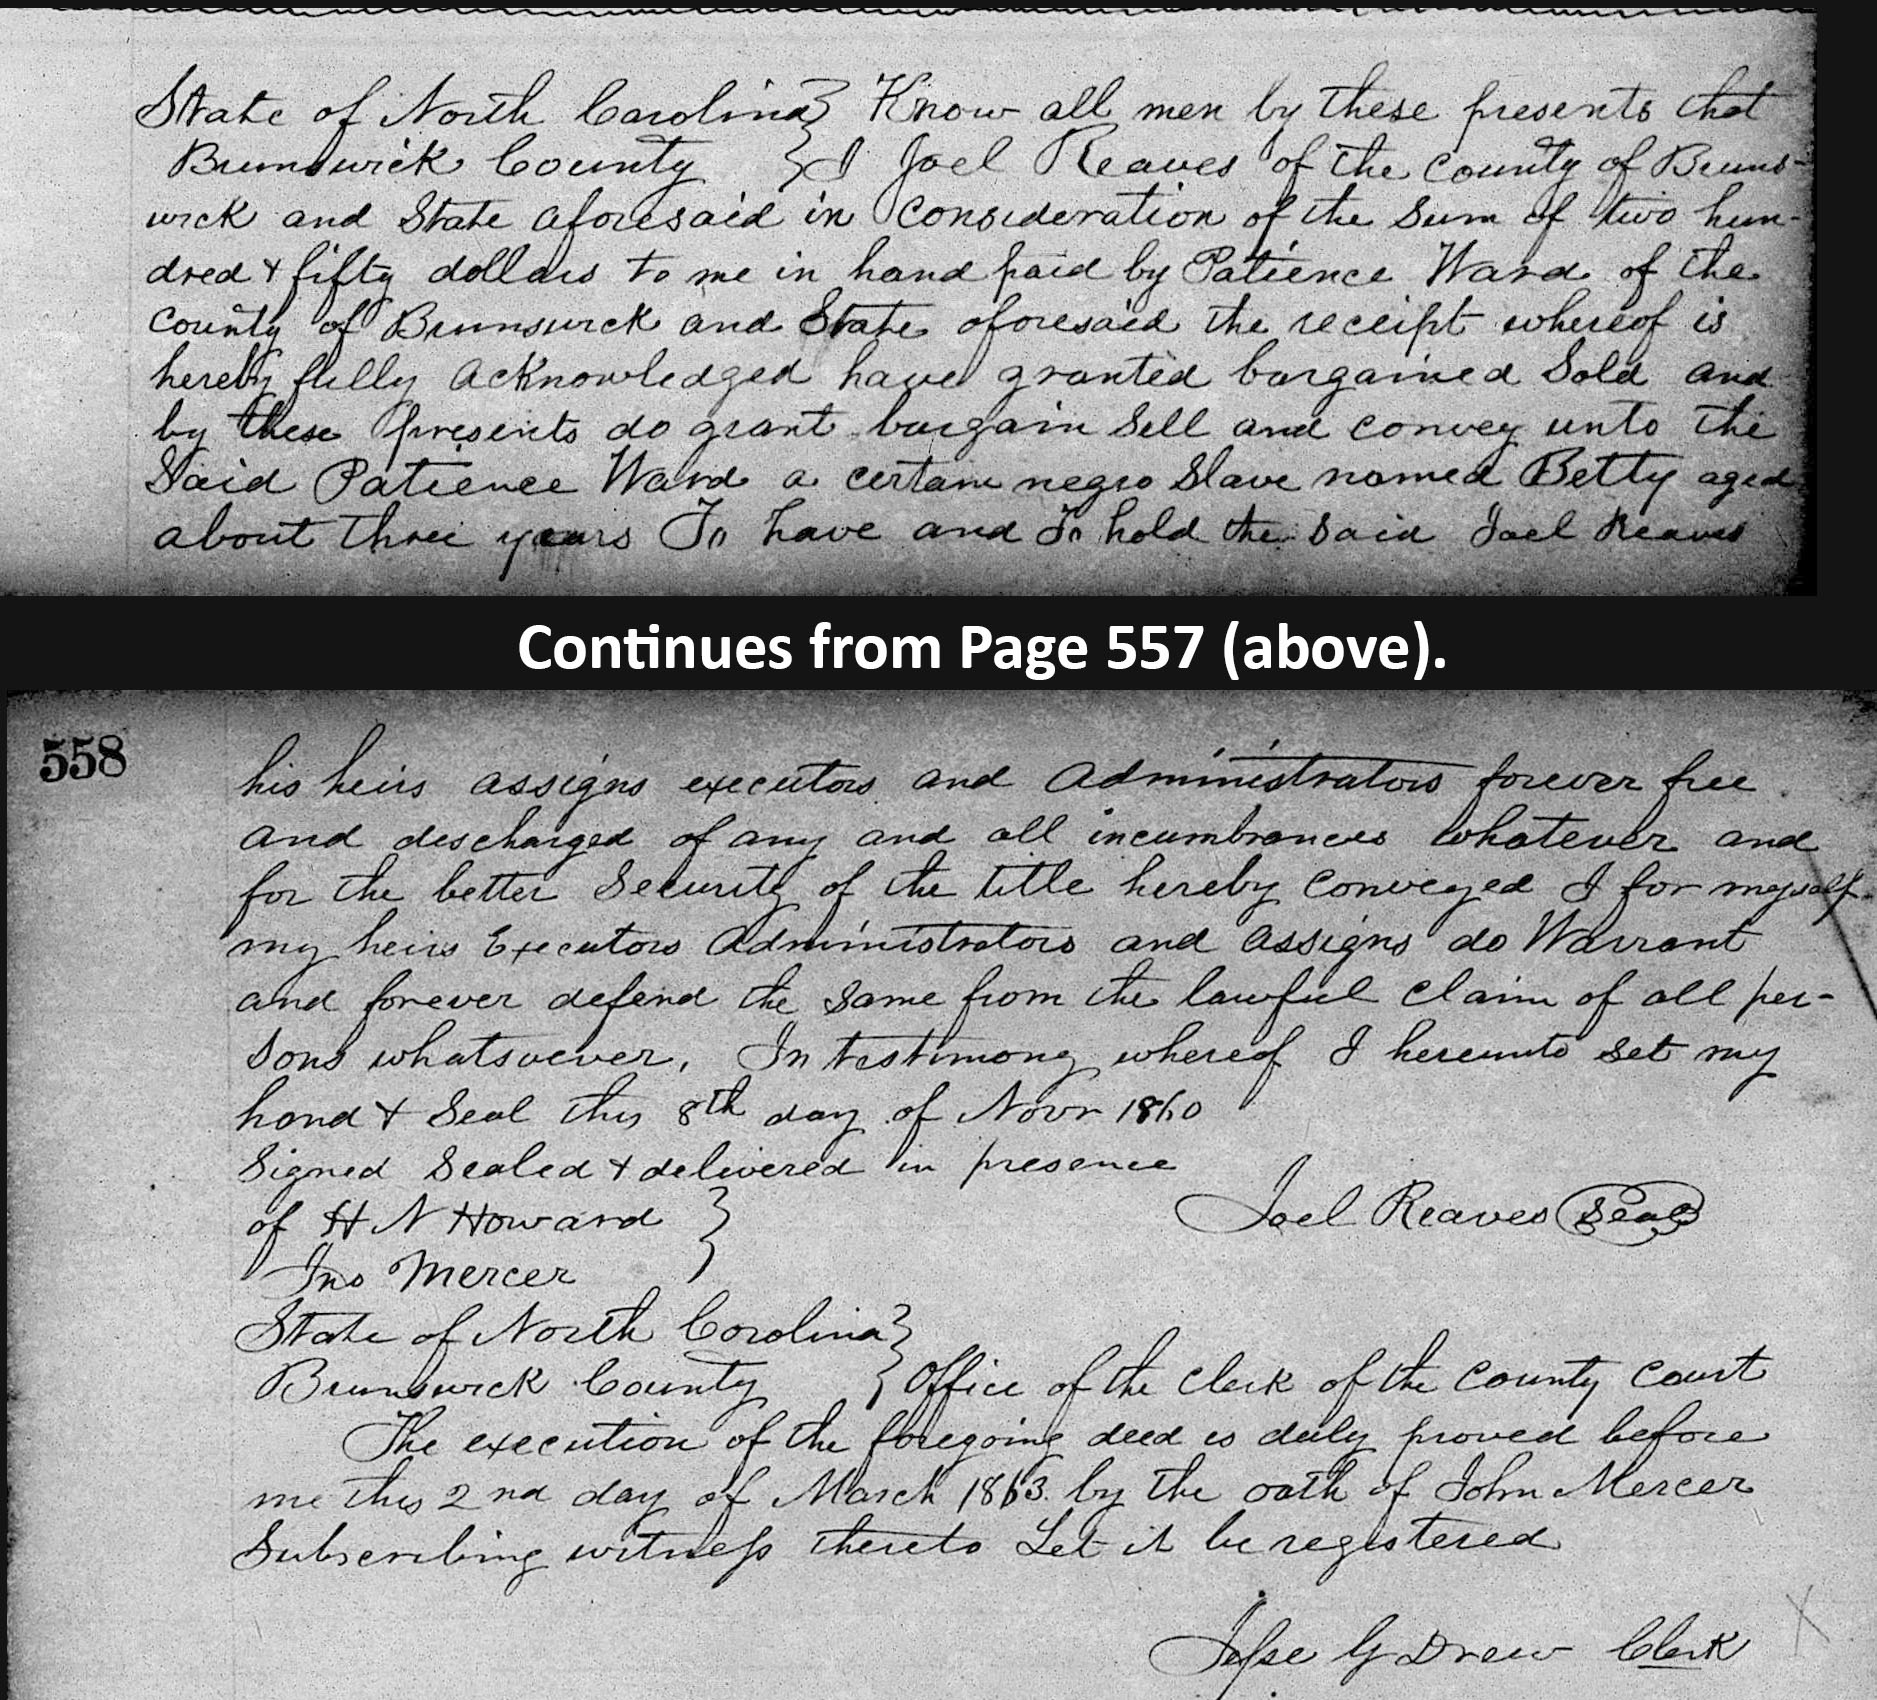 State of North Carolina } Know all men by these presents that
Brunswick County } I Joel Reaves of the County of Bruns-
wick and State aforesaid in consideration of the sum of two hun-
dred & fifty dollars to me in hand paid by Patience Ward of the
County of Brunswick and State aforesaid the receipt whereof is
hereby fully acknowledged have granted bargained Sold and
by these presents do grant bargain Sell and convey unto the
Said Patience Ward a certain negro Slave named Betty aged
about three years To have and To hold the said Joel Reaves
Continues from Page 557 (above).
558
his heirs assigns executors and administrators forever free
and discharged of any and all incumbrances whatever and
for the better Security of the title hereby conveyed I for myself
my heirs Executors administrators and assigns do Warrant
and forever defend the same from the lawful claim of all per-
sons whatsoever. In testimony whereof I hereunto set my
hand & Seal this 8th day of Novr 1860
Signed Sealed & delivered in presence
of H N Howard } Joel Reaves Seal
Jno Mercer
State of North Carolina }
Brunswick County } Office of the Clerk of the County Court
The execution of the foregoing deed is duly proved before
me this 2nd day of March 1863. by the oath of John Mercer
Subscribing witness thereto Let it be registered
Jesse G Drew Clerk